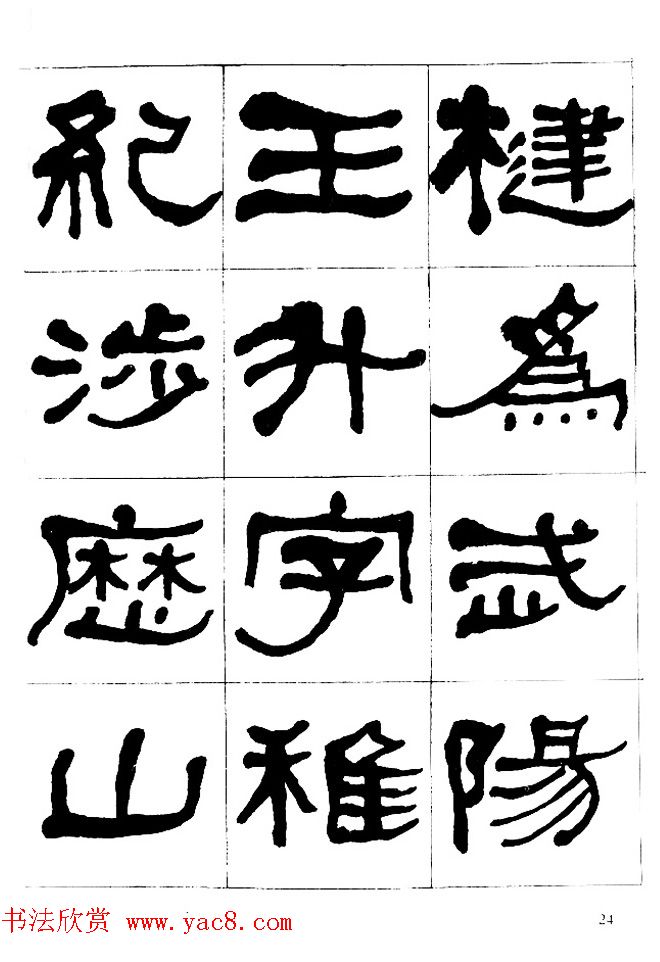 楗為武陽
王升字稚
紀涉歷山
书法欣赏 www.yac8.com
24